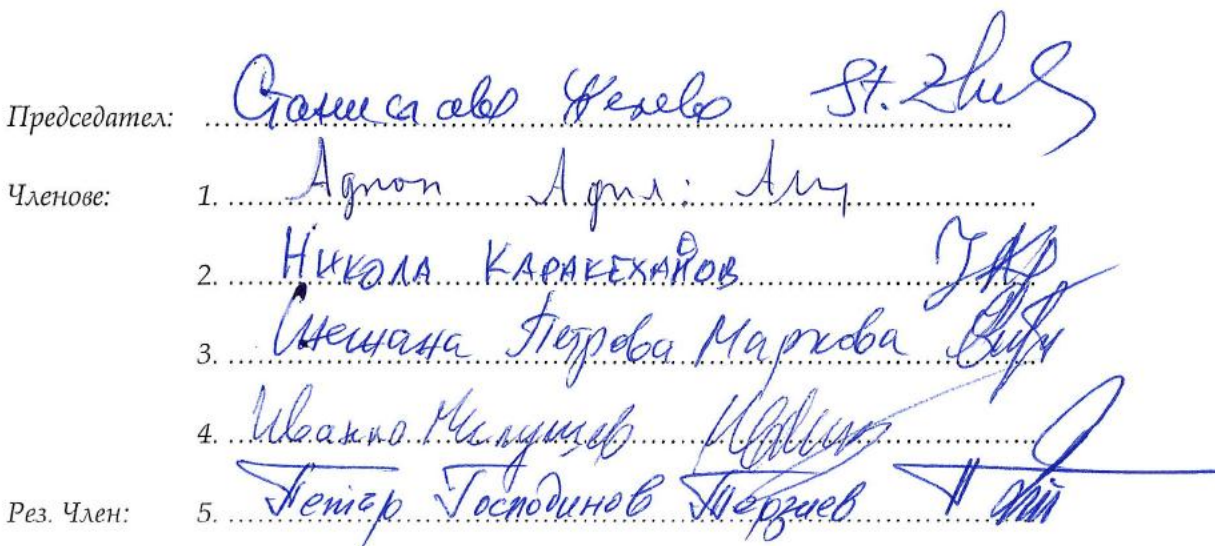 Председател: Станислава Желева St. Zhel
Членове: 1. Аднан Адил:
2. НИКОЛА КАРАКЕХАЙОВ
3. Снежана Петрова Маркова
4. Иванка Милушев
Рез. Член: 5. Петър Господинов Терзиев